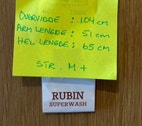 OVERVIDDE : 104 cm
ARM LENGDE : 51 cm
HEL LENGDE : 65 cm
STR. M +
RUBIN
SUPERWASH